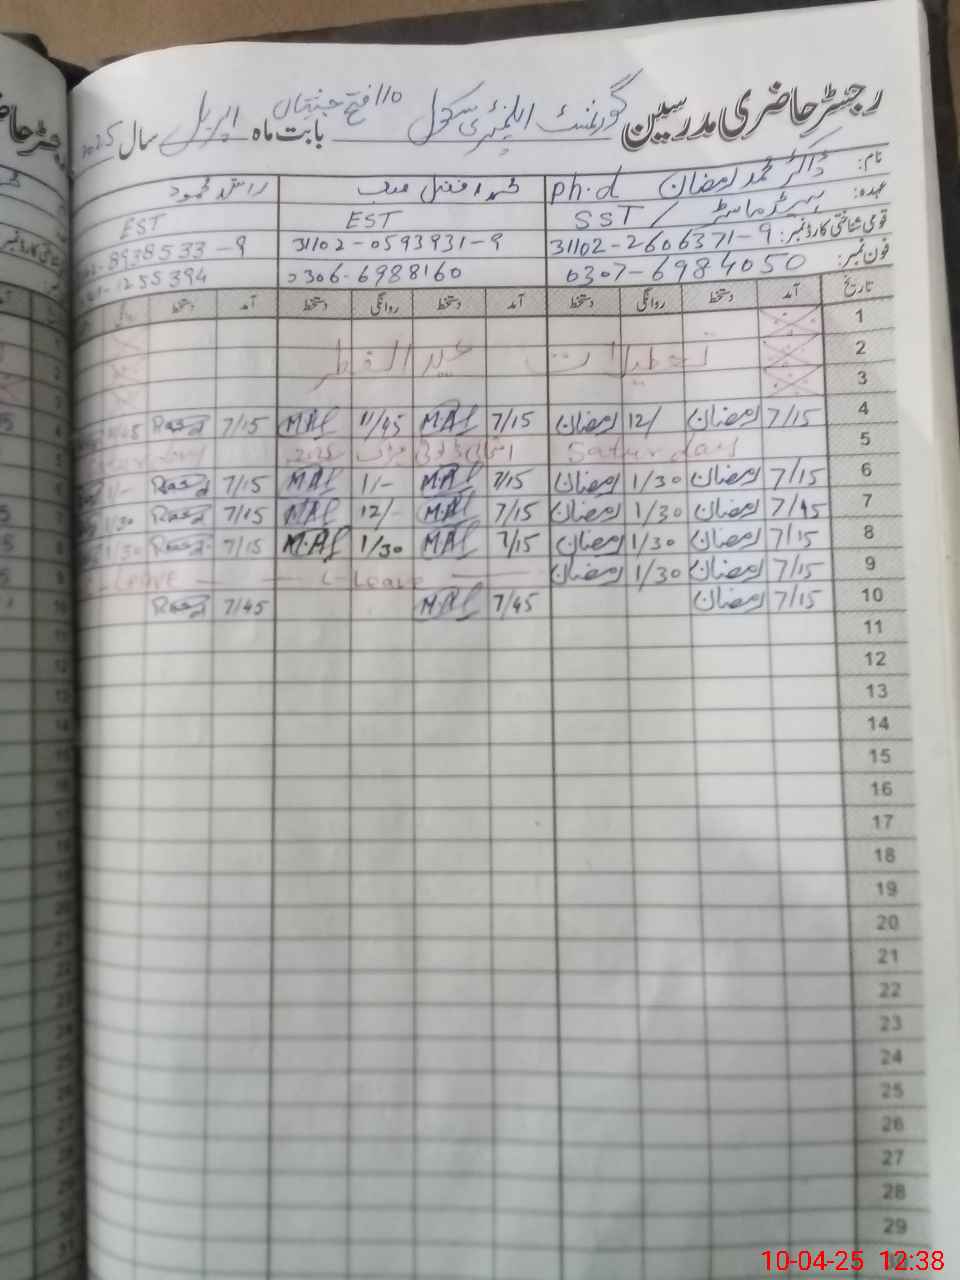 رجسٹر حاضری مدرسین گورنمنٹ ایلیمنٹری سکول 110 فتح بابت ماہ اپریل سال 2025
نام: ڈاکٹر محمد رمضان Ph.d محمد افضل راشد محمود
عہدہ: ہیڈ ماسٹر / SST EST EST
قومی شناختی کارڈ نمبر: 31102-2606371-9 31102-0593931-9 8938533-9
فون نمبر: 0307-6984050 0306-6988160 1255394
تاریخ آمد دستخط روانگی دستخط آمد دستخط روانگی دستخط آمد دستخط
1
2 تعطیلات عید الفطر
3
4 7/15 رمضان 12/ رمضان 7/15 MAf 11/45 MAf 7/15 Rasd 45
5 Saturday
6 7/15 رمضان 1/30 رمضان 7/15 MAf 1/- MAf 7/15 Rasd 1/-
7 7/45 رمضان 1/30 رمضان 7/15 MAf 12/- MAf 7/15 Rasd 1/30
8 7/15 رمضان 1/30 رمضان 7/15 MAf 1/30 M.Af 7/15 Rasd 1/30
9 7/15 رمضان 1/30 رمضان — L-Leave — Leave —
10 7/15 رمضان 7/45 MAf 7/45 Rasd
11
12
13
14
15
16
17
18
19
20
21
22
23
24
25
26
27
28
29
10-04-25 12:38